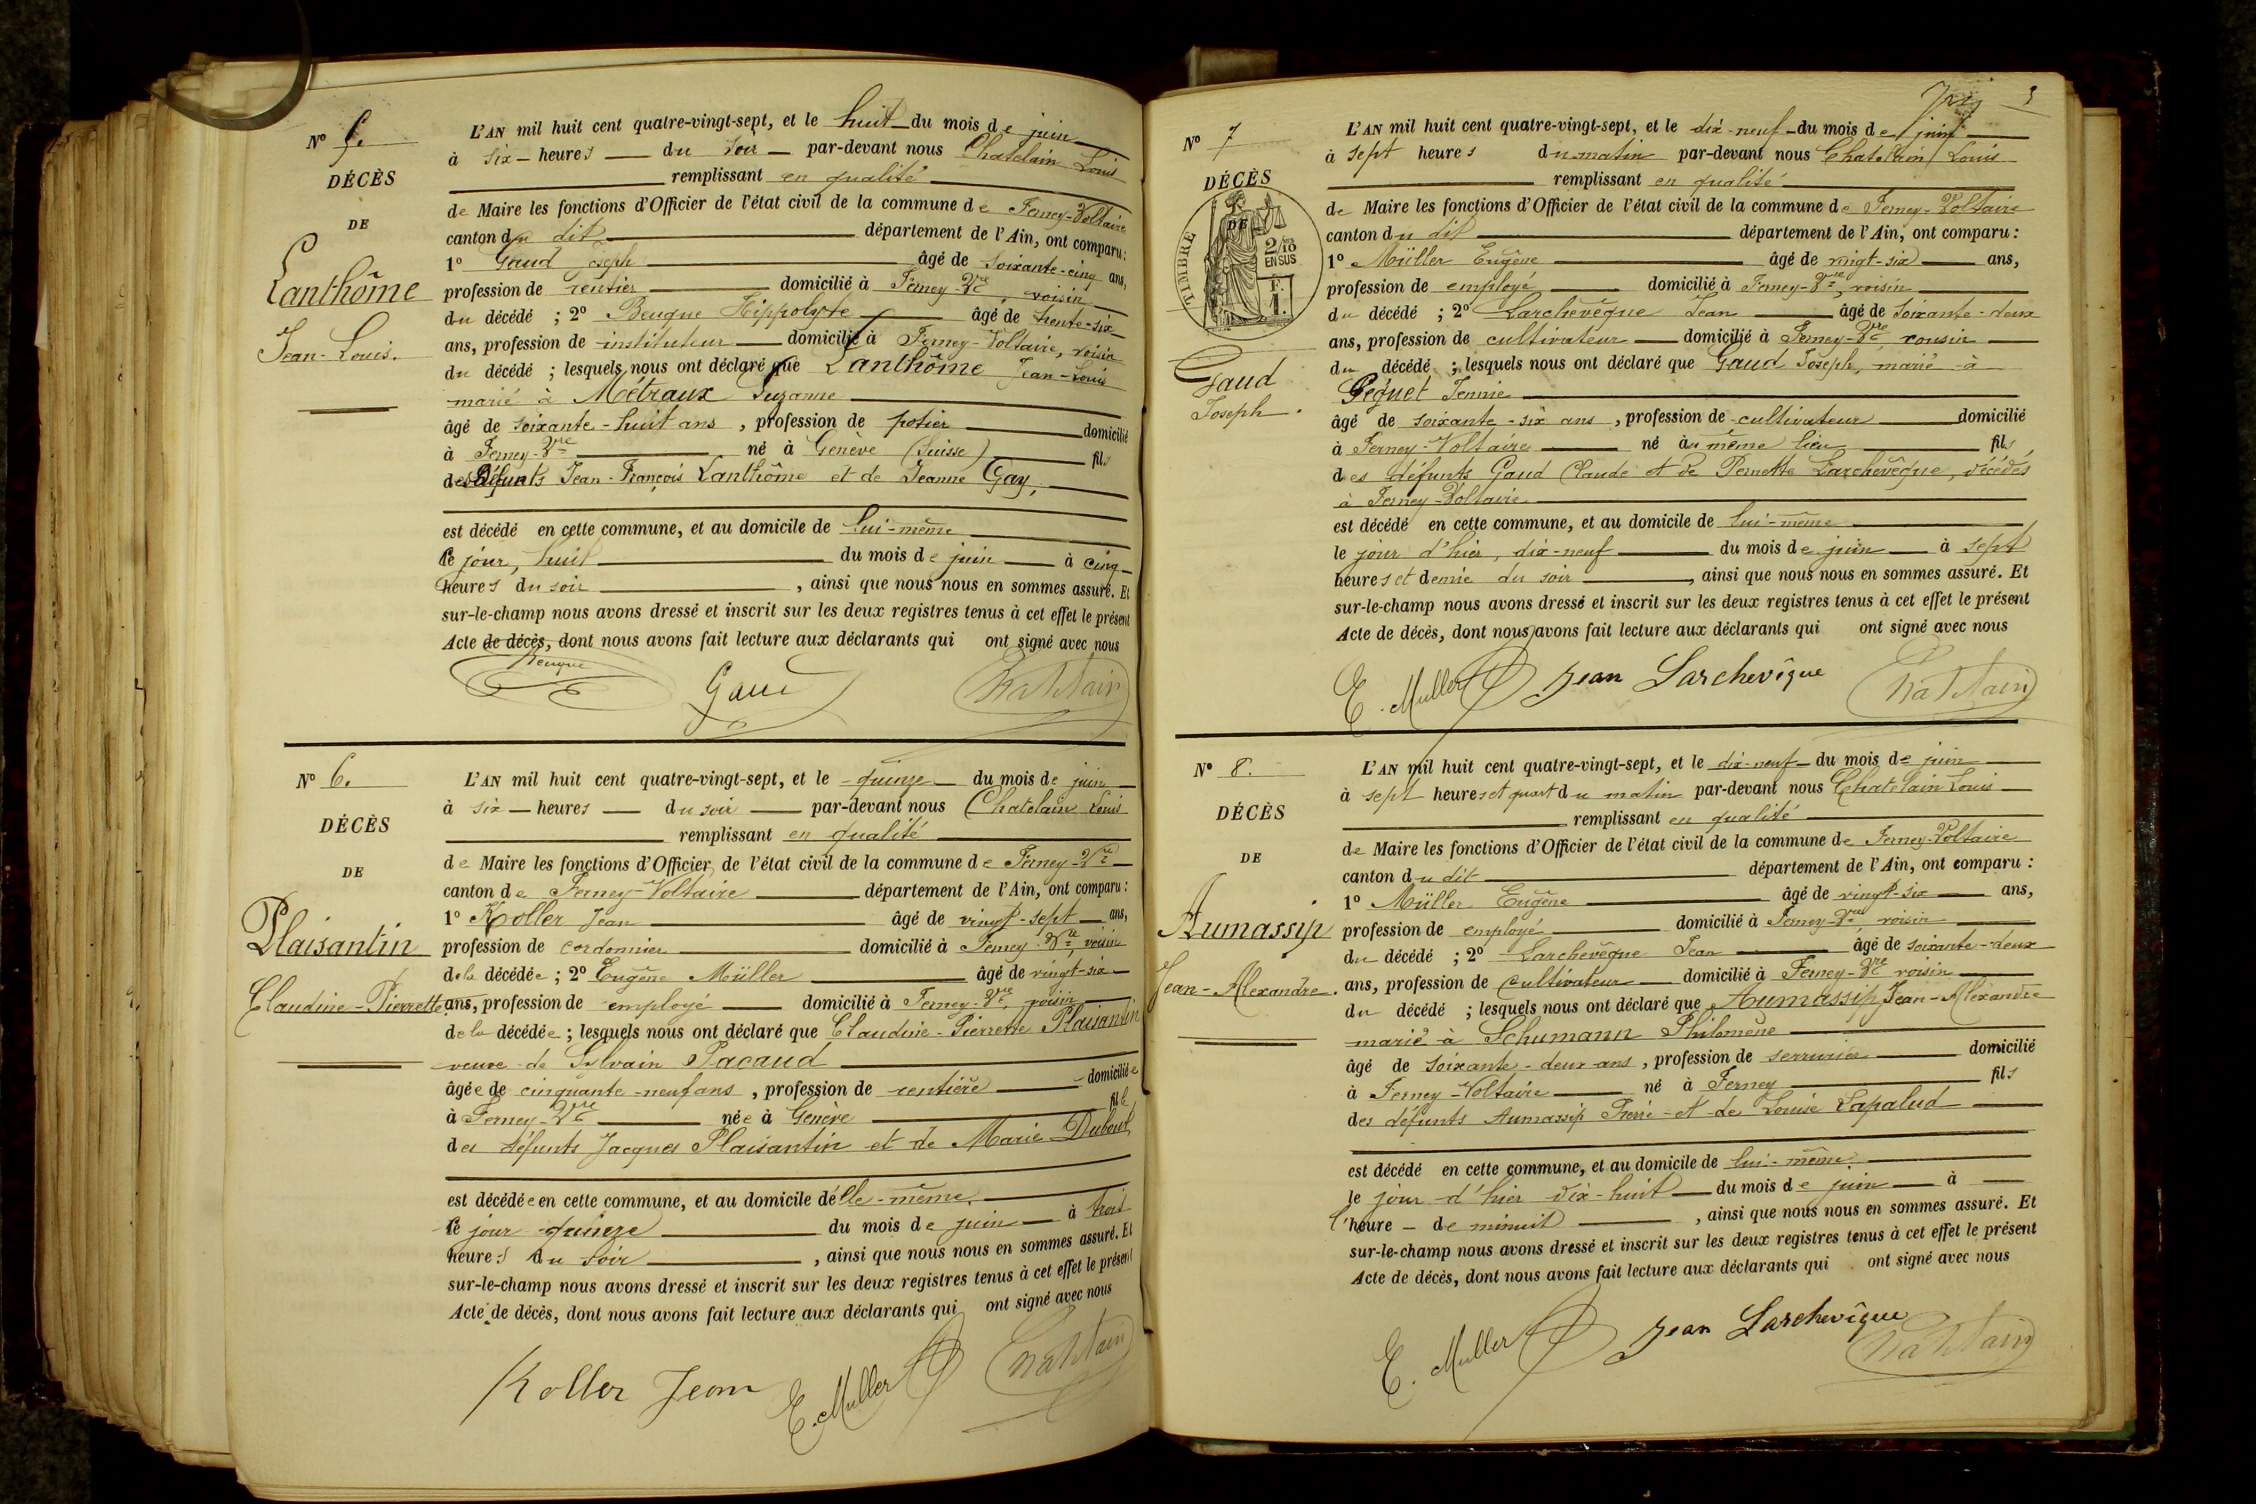 N° 5.
DÉCÈS
DE
Lanthôme
Jean-Louis.
L'AN mil huit cent quatre-vingt-sept, et le huit du mois de juin
à six heures du soir par-devant nous Chatelain Louis
remplissant en qualité
de Maire les fonctions d'Officier de l'état civil de la commune de Ferney-Voltaire
canton du dit département de l'Ain, ont comparu :
1° Gaud Joseph âgé de soixante-cinq ans,
profession de rentier domicilié à Ferney-Vre, voisin
du décédé ; 2° Beugue Hippolyte âgé de trente-six
ans, profession de instituteur domicilié à Ferney-Voltaire, voisin
du décédé ; lesquels nous ont déclaré que Lanthôme Jean-Louis
marié à Métraux Suzanne
âgé de soixante-huit ans, profession de potier domicilié
à Ferney-Vre né à Genève (Suisse) fils
des Défunts Jean-François Lanthôme et de Jeanne Gay,
est décédé en cette commune, et au domicile de lui-même
ce jour, huit du mois de juin à cinq
heures du soir, ainsi que nous nous en sommes assuré. Et
sur-le-champ nous avons dressé et inscrit sur les deux registres tenus à cet effet le présent
Acte de décès, dont nous avons fait lecture aux déclarants qui ont signé avec nous
Beugue Gaud Chatelain
N° 6.
DÉCÈS
DE
Plaisantin
Claudine-Pierrette
L'AN mil huit cent quatre-vingt-sept, et le quinze du mois de juin
à six heures du soir par-devant nous Chatelain Louis
remplissant en qualité
de Maire les fonctions d'Officier de l'état civil de la commune de Ferney-Vre
canton de Ferney-Voltaire département de l'Ain, ont comparu :
1° Koller Jean âgé de vingt-sept ans,
profession de cordonnier domicilié à Ferney-Vre, voisin
de la décédée ; 2° Eugène Müller âgé de vingt-six
ans, profession de employé domicilié à Ferney-Vre, voisin
de la décédée ; lesquels nous ont déclaré que Claudine-Pierrette Plaisantin
veuve de Sylvain Pacaud
âgée de cinquante-neuf ans, profession de rentière domiciliée
à Ferney-Vre née à Genève fille
des défunts Jacques Plaisantin et de Marie Dubout
est décédée en cette commune, et au domicile d'elle-même
ce jour quinze du mois de juin à trois
heures du soir, ainsi que nous nous en sommes assuré. Et
sur-le-champ nous avons dressé et inscrit sur les deux registres tenus à cet effet le présent
Acte de décès, dont nous avons fait lecture aux déclarants qui ont signé avec nous
Koller Jean E. Muller Chatelain
3
N° 7
DÉCÈS
DE
TIMBRE
2/10
EN SUS
F.
1.
Gaud
Joseph.
L'AN mil huit cent quatre-vingt-sept, et le dix-neuf du mois de juin
à sept heures du matin par-devant nous Chatelain Louis
remplissant en qualité
de Maire les fonctions d'Officier de l'état civil de la commune de Ferney-Voltaire
canton du dit département de l'Ain, ont comparu :
1° Müller Eugène âgé de vingt-six ans,
profession de employé domicilié à Ferney-Vre, voisin
du décédé ; 2° Larchevêque Jean âgé de soixante-deux
ans, profession de cultivateur domicilié à Ferney-Vre cousin
du décédé ; lesquels nous ont déclaré que Gaud Joseph, marié à
Pequet Jennie
âgé de soixante-six ans, profession de cultivateur domicilié
à Ferney-Voltaire né au même lieu fils
des défunts Gaud Claude et de Pernette Larchevêque, décédés
à Ferney-Voltaire
est décédé en cette commune, et au domicile de lui-même
le jour d'hier, dix-neuf du mois de juin à sept
heures et demie du soir, ainsi que nous nous en sommes assuré. Et
sur-le-champ nous avons dressé et inscrit sur les deux registres tenus à cet effet le présent
Acte de décès, dont nous avons fait lecture aux déclarants qui ont signé avec nous
E. Muller Jean Larchevêque Chatelain
N° 8.
DÉCÈS
DE
Aumassip
Jean-Alexandre.
L'AN mil huit cent quatre-vingt-sept, et le dix-neuf du mois de juin
à sept heures et quart du matin par-devant nous Chatelain Louis
remplissant en qualité
de Maire les fonctions d'Officier de l'état civil de la commune de Ferney-Voltaire
canton du dit département de l'Ain, ont comparu :
1° Müller Eugène âgé de vingt-six ans,
profession de employé domicilié à Ferney-Vre voisin
du décédé ; 2° Larchevêque Jean âgé de soixante-deux
ans, profession de cultivateur domicilié à Ferney-Vre voisin
du décédé ; lesquels nous ont déclaré que Aumassip Jean-Alexandre
marié à Schumann Philomène
âgé de soixante-deux ans, profession de serrurier domicilié
à Ferney-Voltaire né à Ferney fils
des défunts Aumassip Pierre et de Louise Lapalud
est décédé en cette commune, et au domicile de lui-même
le jour d'hier dix-huit du mois de juin à
l'heure de minuit, ainsi que nous nous en sommes assuré. Et
sur-le-champ nous avons dressé et inscrit sur les deux registres tenus à cet effet le présent
Acte de décès, dont nous avons fait lecture aux déclarants qui ont signé avec nous
E. Muller Jean Larchevêque Chatelain